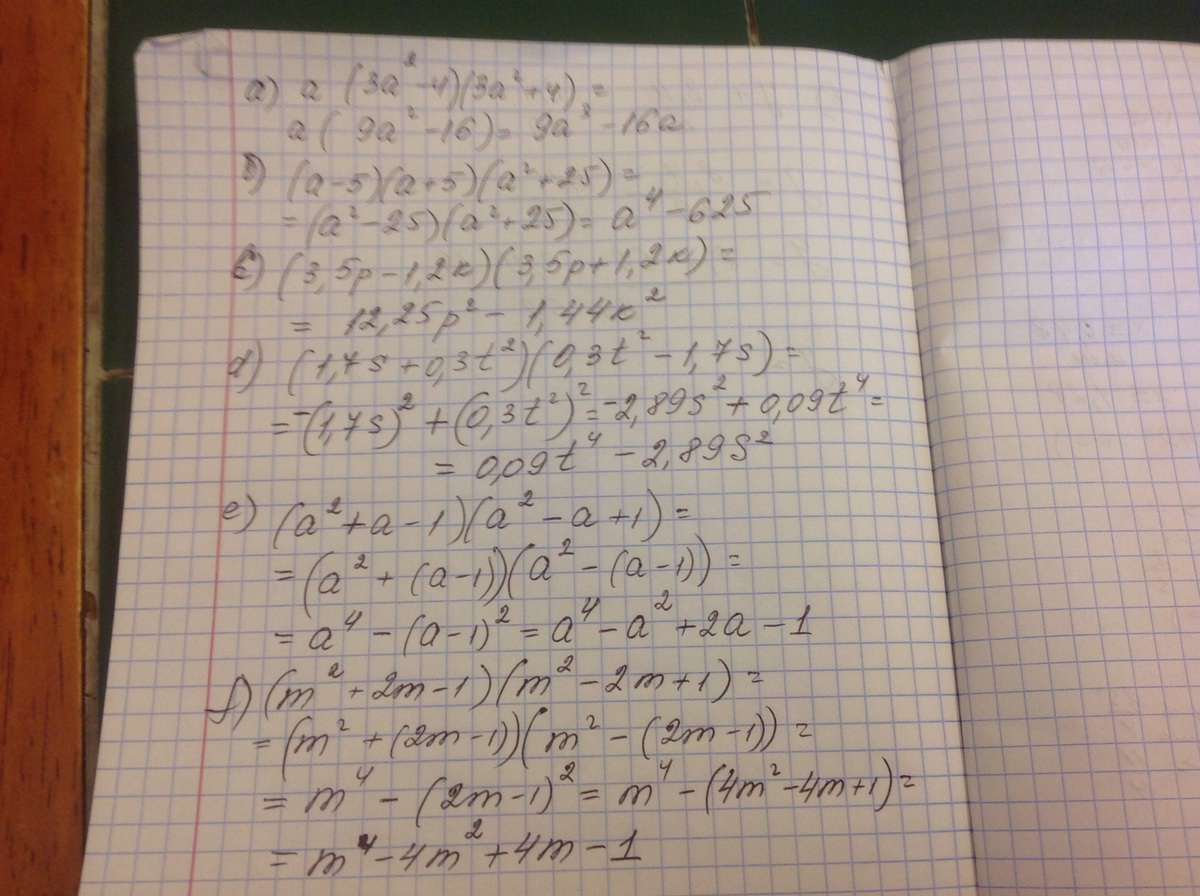 a) a (3a² - 4)(3a² + 4) =
a( 9a² - 16) = 9a³ - 16a
б) (a - 5)(a + 5)(a² + 25) =
= (a² - 25)(a² + 25) = a⁴ - 625
c) (3,5p - 1,2к)(3,5p + 1,2к) =
= 12,25p² - 1,44к²
d) (1,7s + 0,3t²)(0,3t² - 1,7s) =
= -(1,7s)² + (0,3t²)² = -2,89s² + 0,09t⁴ =
= 0,09t⁴ - 2,89s²
e) (a² + a - 1)(a² - a + 1) =
= (a² + (a - 1))(a² - (a - 1)) =
= a⁴ - (a - 1)² = a⁴ - a² + 2a - 1
f) (m² + 2m - 1)(m² - 2m + 1) =
= (m² + (2m - 1))(m² - (2m - 1)) =
= m⁴ - (2m - 1)² = m⁴ - (4m² - 4m + 1) =
= m⁴ - 4m² + 4m - 1